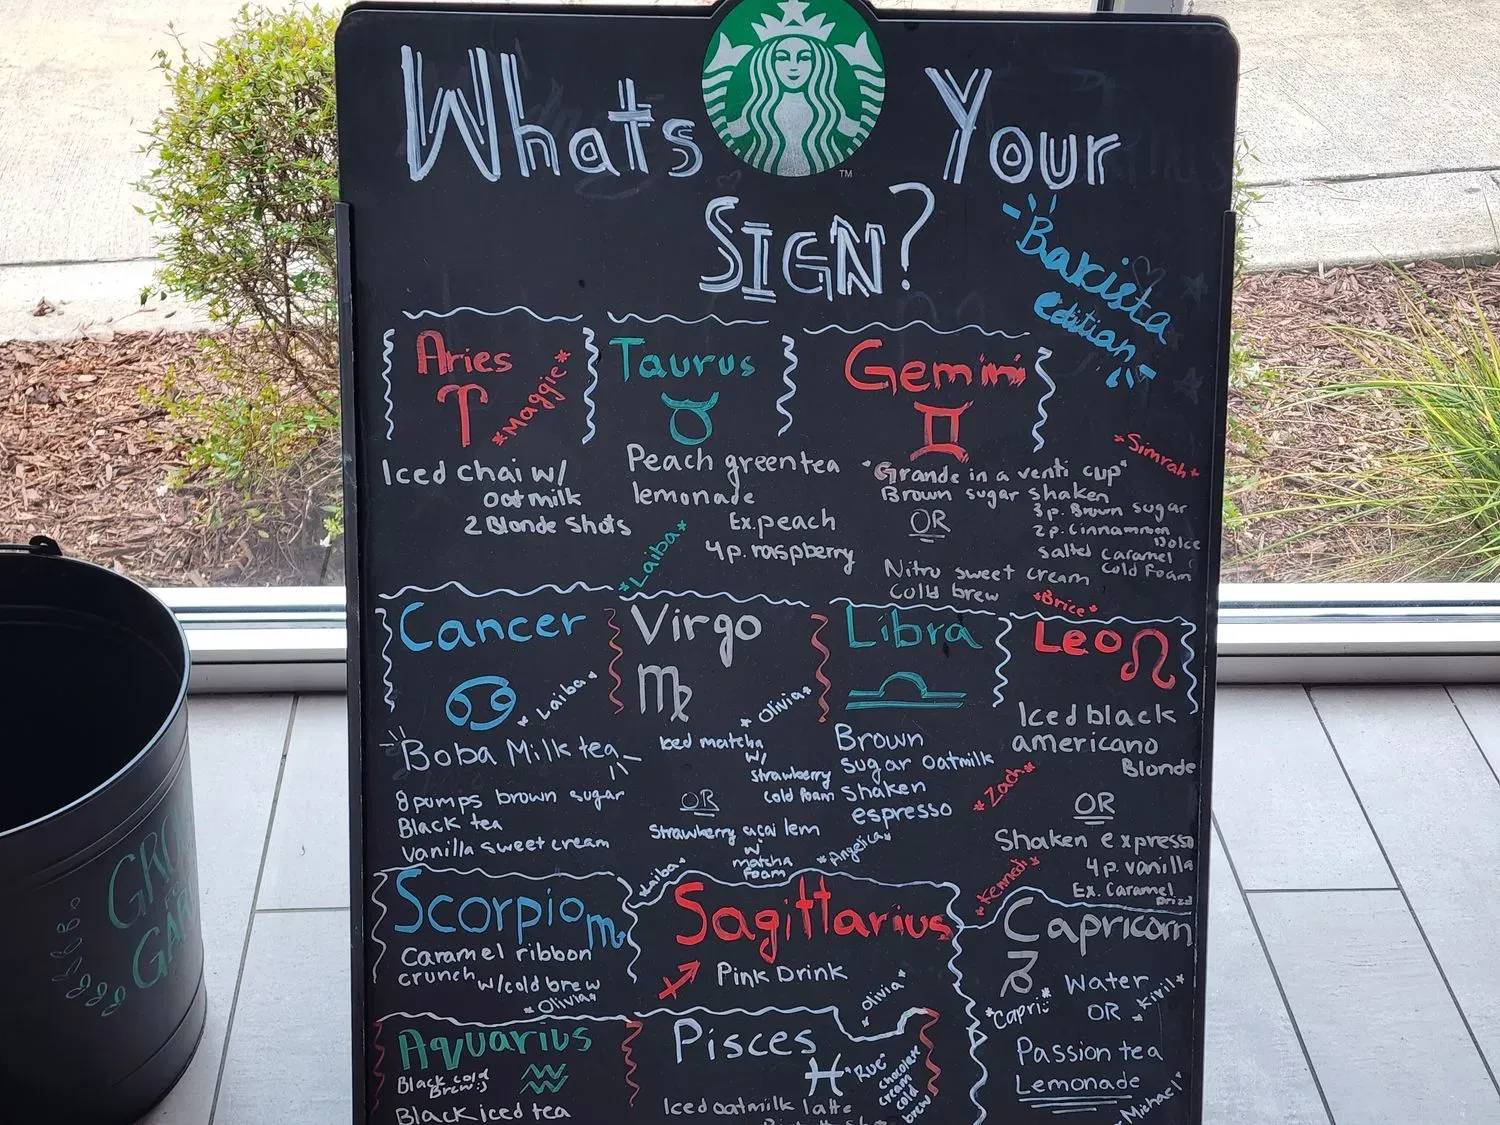 Whats Your
SIGN?
Barista
edition
TM
Aries
*Maggie*
Iced chai w/
oatmilk
2 Blonde Shots
Taurus
Peach green tea
lemonade
Ex. peach
4p. raspberry
*Laiba*
Gemini
*Simrah*
"Grande in a venti cup"
Brown sugar shaken
3p. Brown sugar
2p. Cinnammon
Dolce
Salted caramel
Cold Foam
OR
Nitro sweet cream
Cold brew
*Brice*
Cancer
*Laiba*
Boba Milk tea
8 pumps brown sugar
Black tea
Vanilla sweet cream
Virgo
*Olivia*
Iced matcha
w/
Strawberry
Cold foam
OR
Strawberry acai lem
w/
matcha
foam
*Laiba*
Libra
Brown
Sugar oatmilk
Shaken
espresso
*Angelica*
Leo
Iced black
americano
Blonde
*Zach*
OR
Shaken expresso
4p. vanilla
Ex. Caramel
Drizzl
*Kennedi*
Scorpio
Caramel ribbon
crunch
w/cold brew
*Olivia*
Sagittarius
Pink Drink
*Olivia*
Capricorn
"Capri"
Water
OR
*Kiril*
Passion tea
Lemonade
"Michael"
Aquarius
Black cold
Brew :)
Black iced tea
Pisces
"Rue"
chocolate
cream
cold
brew
Iced oatmilk latte
GRO
GA